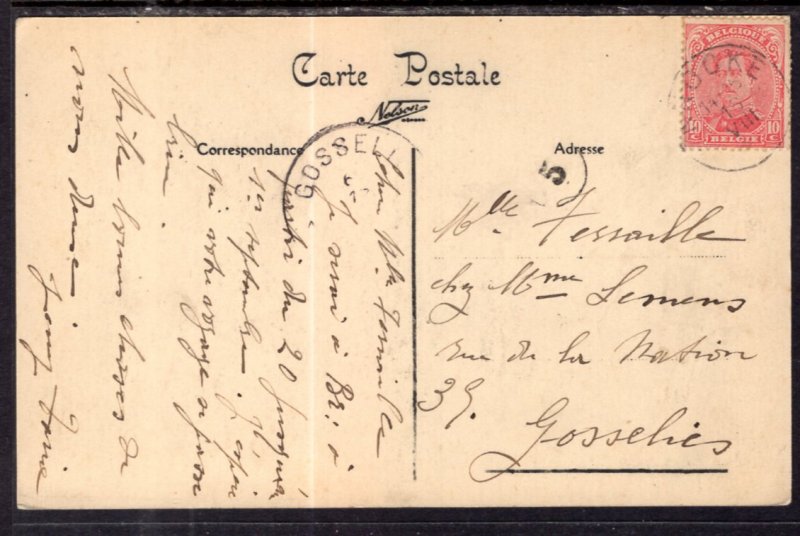 Carte Postale
Nelson
Correspondance
Adresse
BELGIQUE
10 C 10 C
BELGIE
GOSSELI
5
Mlle Fessaille
chez Mme Lemens
rue de la Nation
39.
Gosselies
Chère Mlle
Je serai à Br. à
partir du 20 jusqu'au
1er septembre. J'espère
que votre voyage se passe
bien.
Mille bonnes choses de
nous deux.